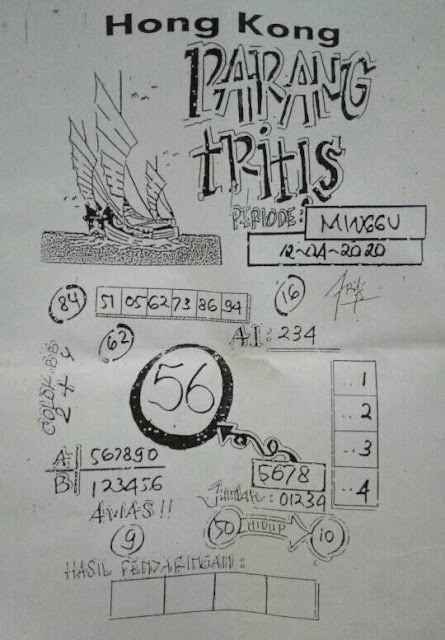 Hong Kong
PARANG
TRITIS
PERIODE: MINGGU
12-04-2020
84 51 05 62 73 86 94 16
62 AI: 234
COLOK BB
2 + 4
56
1
2
3
4
A 567890
B 123456
5678
Jumlah: 01234
AWAS!!
50 HIDUP 10
9
HASIL PENDARINGAN: